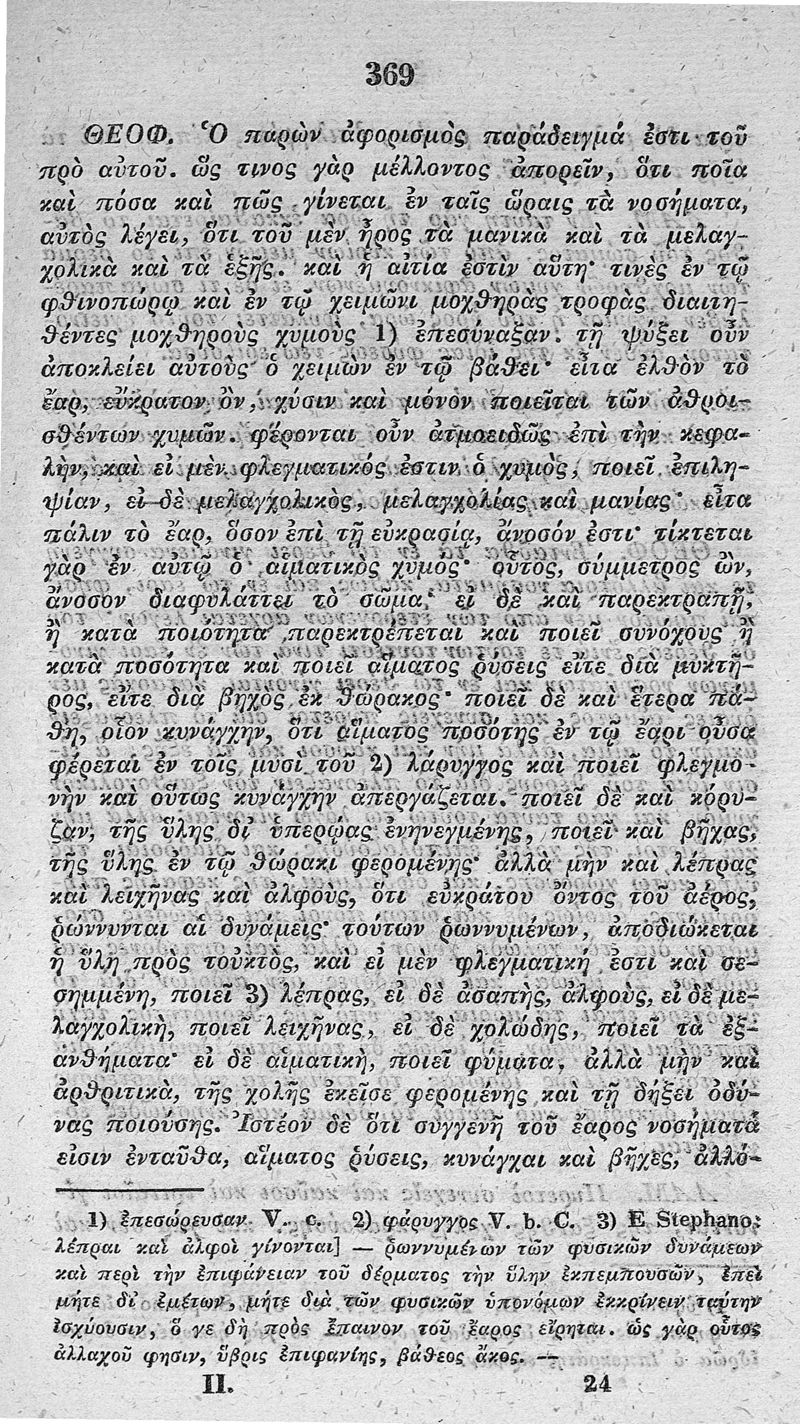 369
ΘΕΟΦ. Ὁ παρὼν ἀφορισμὸς παράδειγμά ἐστι τοῦ
πρὸ αὐτοῦ. ὥς τινος γὰρ μέλλοντος ἀπορεῖν, ὅτι ποῖα
καὶ πόσα καὶ πῶς γίνεται ἐν ταῖς ὥραις τὰ νοσήματα,
αὐτὸς λέγει, ὅτι τοῦ μὲν ἦρος τὰ μανικὰ καὶ τὰ μελαγ-
χολικὰ καὶ τὰ ἑξῆς. καὶ ἡ αἰτία ἐστὶν αὕτη· τινὲς ἐν τῷ
φθινοπώρῳ καὶ ἐν τῷ χειμῶνι μοχθηρὰς τροφὰς διαιτη-
θέντες μοχθηροὺς χυμοὺς 1) ἐπεσύναξαν. τῇ ψύξει οὖν
ἀποκλείει αὐτοὺς ὁ χειμὼν ἐν τῷ βάθει· εἶτα ἐλθὸν τὸ
ἔαρ, εὔκρατον ὂν, χύσιν καὶ μόνον ποιεῖται τῶν ἀθροι-
σθέντων χυμῶν. φέρονται οὖν ἀτμοειδῶς ἐπὶ τὴν κεφα-
λὴν, καὶ εἰ μὲν φλεγματικός ἐστιν ὁ χυμὸς, ποιεῖ ἐπιλη-
ψίαν, εἰ δὲ μελαγχολικὸς, μελαγχολίας καὶ μανίας· εἶτα
πάλιν τὸ ἔαρ, ὅσον ἐπὶ τῇ εὐκρασίᾳ, ἄνοσόν ἐστι· τίκτεται
γὰρ ἐν αὐτῷ ὁ αἱματικὸς χυμός· οὗτος, σύμμετρος ὢν,
ἄνοσον διαφυλάττει τὸ σῶμα, εἰ δὲ καὶ παρεκτραπῇ,
ἢ κατὰ ποιότητα παρεκτρέπεται καὶ ποιεῖ συνόχους ἢ
κατὰ ποσότητα καὶ ποιεῖ αἵματος ῥύσεις εἴτε διὰ μυκτῆ-
ρος, εἴτε διὰ βηχὸς ἐκ θώρακος· ποιεῖ δὲ καὶ ἕτερα πά-
θη, οἷον κυνάγχην, ὅτι αἵματος ποσότης ἐν τῷ ἔαρι οὖσα
φέρεται ἐν τοῖς μυσὶ τοῦ 2) λάρυγγος καὶ ποιεῖ φλεγμο-
νὴν καὶ οὕτως κυνάγχην ἀπεργάζεται. ποιεῖ δὲ καὶ κόρυ-
ζαν, τῆς ὕλης δι᾽ ὑπερῴας ἐνηνεγμένης, ποιεῖ καὶ βῆχας,
τῆς ὕλης ἐν τῷ θώρακι φερομένης· ἀλλὰ μὴν καὶ λέπρας
καὶ λειχῆνας καὶ ἀλφοὺς, ὅτι εὐκράτου ὄντος τοῦ ἀέρος,
ῥώννυνται αἱ δυνάμεις· τούτων ῥωννυμένων, ἀποδιώκεται
ἡ ὕλη πρὸς τοὐκτὸς, καὶ εἰ μὲν φλεγματική ἐστι καὶ σε-
σημμένη, ποιεῖ 3) λέπρας, εἰ δὲ ἀσαπὴς, ἀλφοὺς, εἰ δὲ με-
λαγχολικὴ, ποιεῖ λειχῆνας, εἰ δὲ χολώδης, ποιεῖ τὰ ἐξ-
ανθήματα· εἰ δὲ αἱματικὴ, ποιεῖ φύματα, ἀλλὰ μὴν καὶ
ἀρθριτικὰ, τῆς χολῆς ἐκεῖσε φερομένης καὶ τῇ δήξει ὀδύ-
νας ποιούσης. Ἰστέον δὲ ὅτι συγγενῆ τοῦ ἔαρος νοσήματά
εἰσιν ἐνταῦθα, αἵματος ῥύσεις, κυνάγχαι καὶ βῆχες, ἀλλό-
1) ἐπεσώρευσαν V. c. 2) φάρυγγος V. b. C. 3) E Stephano:
λέπραι καὶ ἀλφοὶ γίνονται] — ῥωννυμένων τῶν φυσικῶν δυνάμεων
καὶ περὶ τὴν ἐπιφάνειαν τοῦ δέρματος τὴν ὕλην ἐκπεμπουσῶν, ἐπεὶ
μήτε δι᾽ ἐμέτων, μήτε διὰ τῶν φυσικῶν ὑπονόμων ἐκκρίνειν ταύτην
ἰσχύουσιν, ὅ γε δὴ πρὸς ἔπαινον τοῦ ἔαρος εἴρηται. ὡς γὰρ οὗτος
ἀλλαχοῦ φησιν, ὕβρις ἐπιφανίης, βάθεος ἄκος. —
II. 24